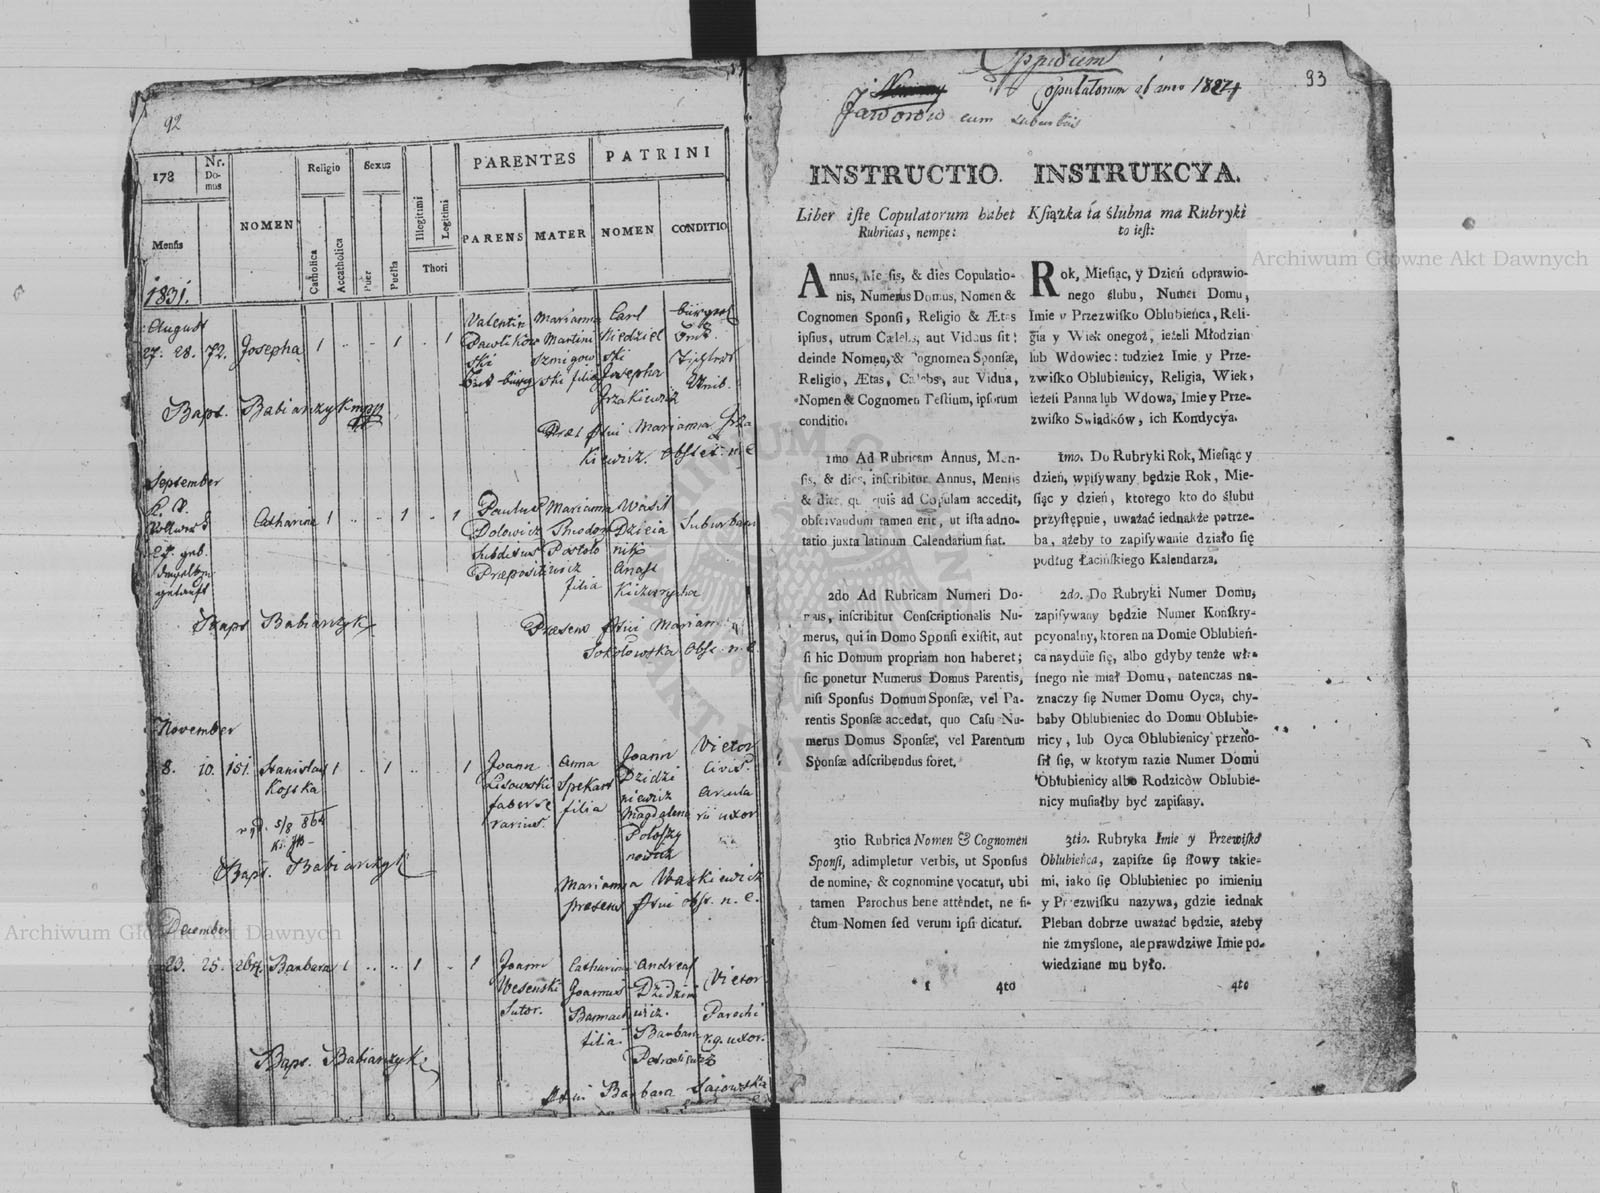 92
178
Mensis
Nr. Domus
NOMEN
Religio
Catholica
Accatholica
Sexus
Puer
Puella
Illegitimi
Legitimi
Thori
PARENTES
PARENS
MATER
PATRINI
NOMEN
CONDITIO
1831.
August
27. 28. 72. Josepha 1 .. .. 1 . 1
Valentin
Pawlikow
ski
Marianna
Martini
Szmigow
ski filia
Carl
Niedziel
ski
Josepha
Bapt. Babiarzyk mpp
Marianna
kiewicz. Obstet. n. e.
September
Catharina 1 .. .. 1 . 1
Paulus
Dolowicz
subditus
Marianna
Theodor
filia
Wasil
Suburban
geb.
getauft
Bapt. Babiarzyk
Praesens fuit Mariann
Sokołowska Obst. n. e.
November
8. 10. 151. Stanislaus 1 .. 1 .. . 1
Kostka
Joann
Lisowski
faber fe
rarius.
Anna
filia
Joann
Dzidzi
niewicz
Magdalena
Victor
Civis.
uxor
Bapt. Babiarzyk
Marianna Waskiewicz
praesens fuit obst. n. e.
December
23. 25. 264. Barbara 1 .. .. 1 . 1
Joann
Wesenski
Sutor.
Catharina
Joannis
filia
Andreas
Dzidzin
wicz.
Barbara
Victor
Parochi
uxor.
Bapt. Babiarzyk
fuit Barbara
93
Oppidum
Copulatorum ab anno 1824
Jaworow cum suburbiis
INSTRUCTIO.
Liber iste Copulatorum habet
Rubricas, nempe:
Annus, Mensis, & dies Copulatio-
nis, Numerus Domus, Nomen &
Cognomen Sponsi, Religio & Ætas
ipsius, utrum Cælebs, aut Viduus sit!
deinde Nomen, & Cognomen Sponsæ,
Religio, Ætas, Cælebs, aut Vidua,
Nomen & Cognomen Testium, ipsorum
conditio.
1mo Ad Rubricam Annus, Men-
sis, & dies, inscribitur Annus, Mensis
& dies, quo quis ad Copulam accedit,
observandum tamen erit, ut ista adno-
tatio juxta latinum Calendarium fiat.
2do Ad Rubricam Numeri Do-
mus, inscribitur Conscriptionalis Nu-
merus, qui in Domo Sponsi existit, aut
si hic Domum propriam non haberet;
sic ponetur Numerus Domus Parentis,
nisi Sponsus Domum Sponsæ, vel Pa-
rentis Sponsæ accedat, quo Casu Nu-
merus Domus Sponsæ, vel Parentum
Sponsæ adscribendus foret.
3tio Rubrica Nomen & Cognomen
Sponsi, adimpletur verbis, ut Sponsus
de nomine, & cognomine vocatur, ubi
tamen Parochus bene attendet, ne fi-
ctum Nomen sed verum ipsi dicatur.
1 4to
INSTRUKCYA.
Książka ta ślubna ma Rubryki
to iest:
Rok, Miesiąc, y Dzień odprawio-
nego ślubu, Numer Domu,
Imie y Przezwisko Oblubieńca, Reli-
gia y Wiek onegoż, ieżeli Młodzian
lub Wdowiec: tudzież Imie y Prze-
zwisko Oblubienicy, Religia, Wiek,
ieżeli Panna lub Wdowa, Imie y Prze-
zwisko Swiadków, ich Kondycya.
1mo. Do Rubryki Rok, Miesiąc y
dzień, wpisywany będzie Rok, Mie-
siąc y dzień, ktorego kto do ślubu
przystępnie, uważać iednakże potrze-
ba, ażeby to zapisywanie działo się
podług Łacińskiego Kalendarza.
2do. Do Rubryki Numer Domu,
zapisywany będzie Numer Konskry-
pcyonalny, ktoren na Domie Oblubień-
ca nayduie się, albo gdyby tenże wła-
snego nie miał Domu, natenczas na-
znaczy się Numer Domu Oyca, chy-
baby Oblubieniec do Domu Oblubie-
nicy, lub Oyca Oblubienicy przeno-
sił się, w ktorym razie Numer Domu
Oblubienicy albo Rodziców Oblubie-
nicy musiałby być zapisany.
3tio. Rubryka Imie y Przewisko
Oblubieńca, zapisze się słowy takie-
mi, iako się Oblubieniec po imieniu
y Przezwisku nazywa, gdzie iednak
Pleban dobrze uważać będzie, ażeby
nie zmyślone, ale prawdziwe Imie po-
wiedziane mu było.
4to
Archiwum Główne Akt Dawnych
Archiwum Główne Akt Dawnych